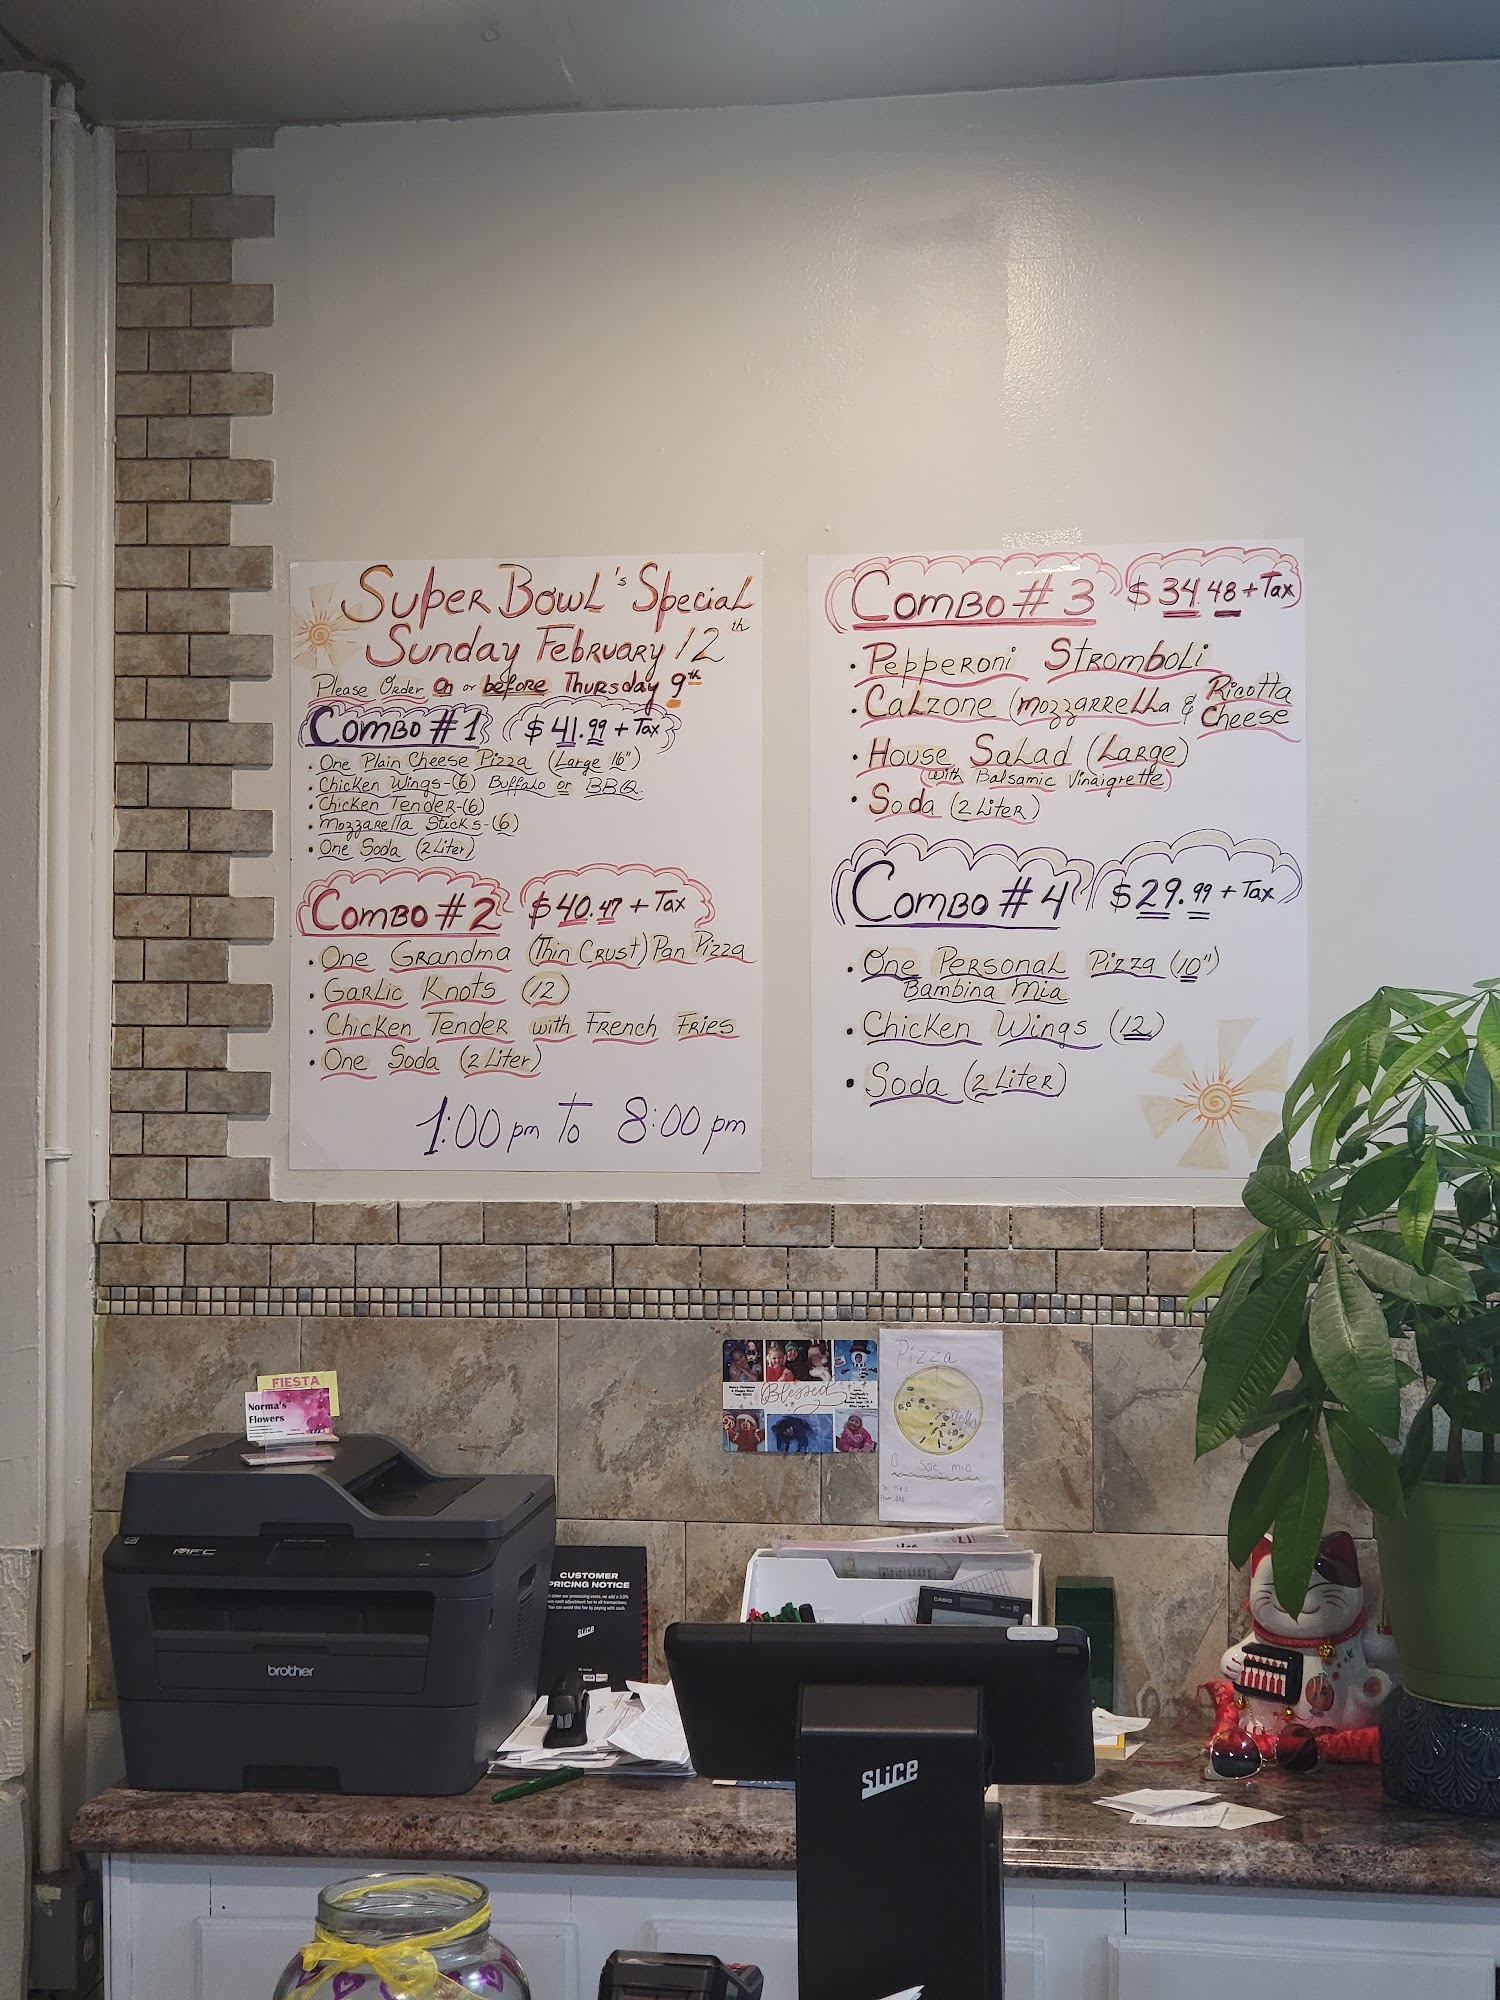 Super Bowl's Special
Sunday February 12th
Please Order on or before Thursday 9th
Combo #1 $41.99 + Tax
• One Plain Cheese Pizza (Large 16")
• Chicken Wings-(6) Buffalo or BBQ.
• Chicken Tender-(6)
• Mozzarella Sticks-(6)
• One Soda (2 Liter)
Combo #2 $40.47 + Tax
• One Grandma (Thin Crust) Pan Pizza
• Garlic Knots (12)
• Chicken Tender with French Fries
• One Soda (2 Liter)
1:00 pm To 8:00 pm
Combo #3 $34.48 + Tax
• Pepperoni Stromboli
• Calzone (Mozzarella & Ricotta
Cheese
• House Salad (Large)
(with Balsamic Vinaigrette)
• Soda (2 Liter)
Combo #4 $29.99 + Tax
• One Personal Pizza (10")
Bambina Mia
• Chicken Wings (12)
• Soda (2 Liter)
FIESTA
Norma's
Flowers
Blessed
Pizza
O Sole mio
MFC
brother
CUSTOMER
PRICING NOTICE
SLICE
CASIO
SLICE